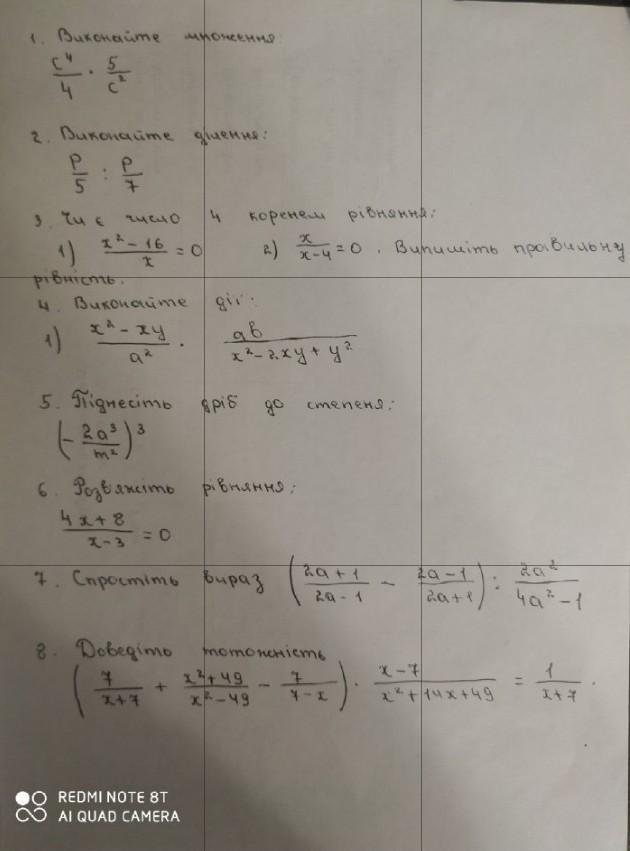 1. Виконайте множення:
c⁴/4 · 5/c²
2. Виконайте ділення:
P/5 : P/7
3. Чи є число 4 коренем рівняння:
1) (x² - 16)/x = 0 2) x/(x-4) = 0. Випишіть правильну
рівність.
4. Виконайте дії:
1) (x² - xy)/a² · ab/(x² - 2xy + y²)
5. Піднесіть дріб до степеня:
(- 2a³/m²)³
6. Розв'яжіть рівняння:
(4x + 8)/(x - 3) = 0
7. Спростіть вираз ((2a + 1)/(2a - 1) - (2a - 1)/(2a + 1)) : 2a²/(4a² - 1)
8. Доведіть тотожність
(7/(x+7) + (x² + 49)/(x² - 49) - 7/(7 - x)) · (x - 7)/(x² + 14x + 49) = 1/(x + 7).
REDMI NOTE 8T
AI QUAD CAMERA